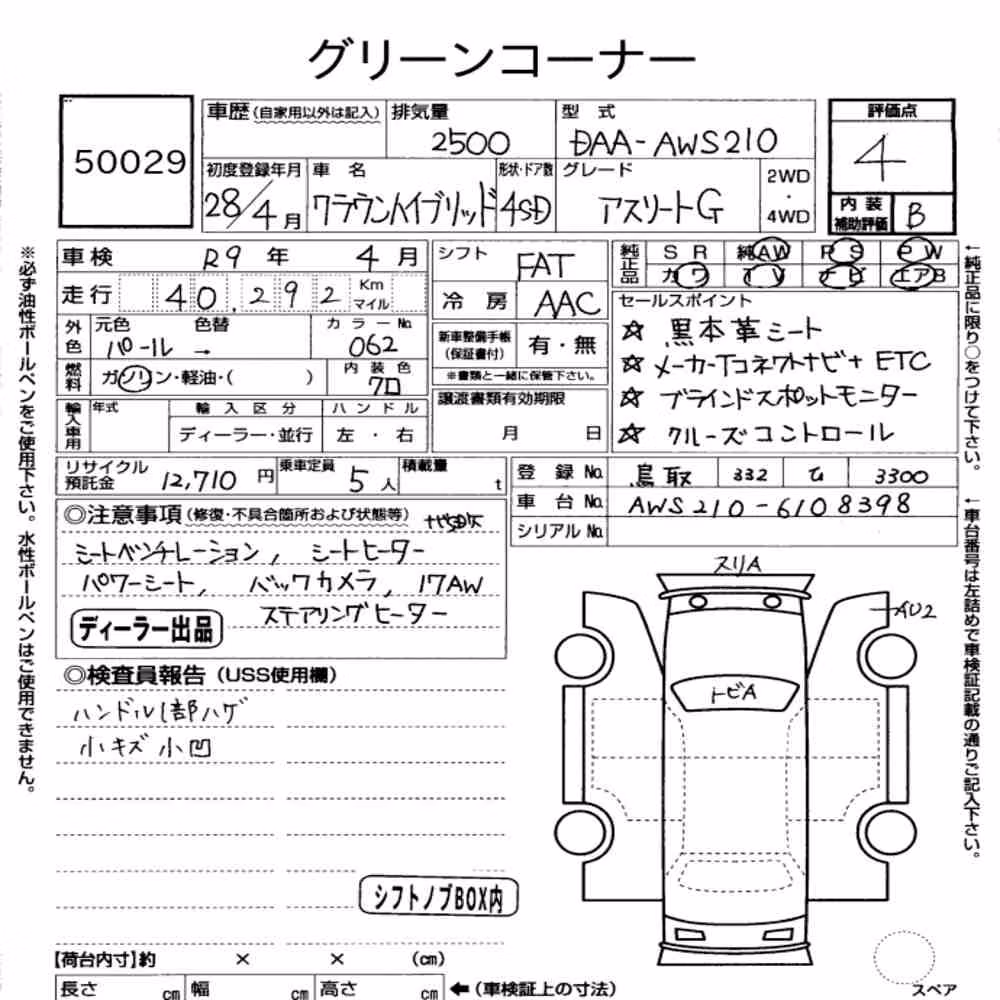 グリーンコーナー
50029
車歴(自家用以外は記入) 排気量 型式 評価点
2500 DAA-AWS210 4
初度登録年月 車名 形状・ドア数 グレード 2WD・4WD 内装補助評価
28/4月 クラウンハイブリッド 4SD アスリートG B
車検 R9年 4月
シフト FAT
純正品 SR 純AW PS PW
カワ TV ナビ エアB
走行 40,292 Km マイル
冷房 AAC
セールスポイント
☆ 黒本革シート
☆ メーカーTコネクトナビ+ETC
☆ ブラインドスポットモニター
☆ クルーズコントロール
外色 元色 色替 カラーNo.
パール → 062
新車整備手帳(保証書付) 有・無
※書類と一緒に保管下さい。
燃料 ガソリン・軽油・( ) 内装色
クロ
譲渡書類有効期限
月 日
輸入車用 年式 輸入区分 ハンドル
ディーラー・並行 左・右
リサイクル預託金 12,710円 乗車定員 5人 積載量 t
登録No. 鳥取 332 3300
車台No. AWS210-6108398
シリアルNo.
◎注意事項(修復・不具合箇所および状態等)
シートベンチレーション, シートヒーター
パワーシート, バックカメラ, 17AW
ステアリングヒーター
ディーラー出品
◎検査員報告(USS使用欄)
ハンドル1部ハゲ
小キズ小凹
シフトノブBOX内
スリA
AU2
トビA
【荷台内寸】約 × × (cm)
長さ cm 幅 cm 高さ cm ←(車検証上の寸法)
スペア
※必ず油性ボールペンをご使用下さい。水性ボールペンはご使用できません。
←純正品に限り○をつけて下さい。
←車台番号は左詰めで車検証記載の通りご記入下さい。